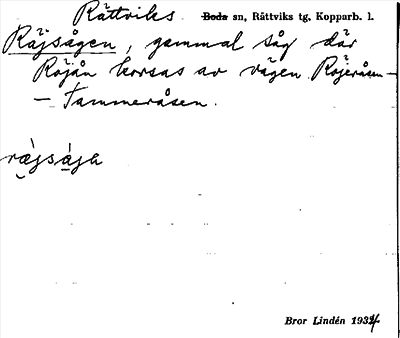 Rättviks Boda sn, Rättviks tg, Kopparb. l.
Räjsågen, gammal såg där
Röjån korsas av vägen Röjeråsen -
- Tammeråsen.
ræjsågɑ
Bror Lindén 1934